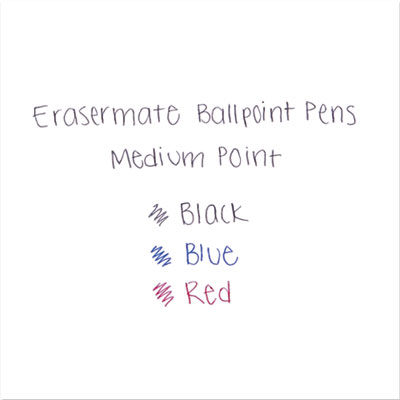 Erasermate Ballpoint Pens
Medium Point
Black
Blue
Red